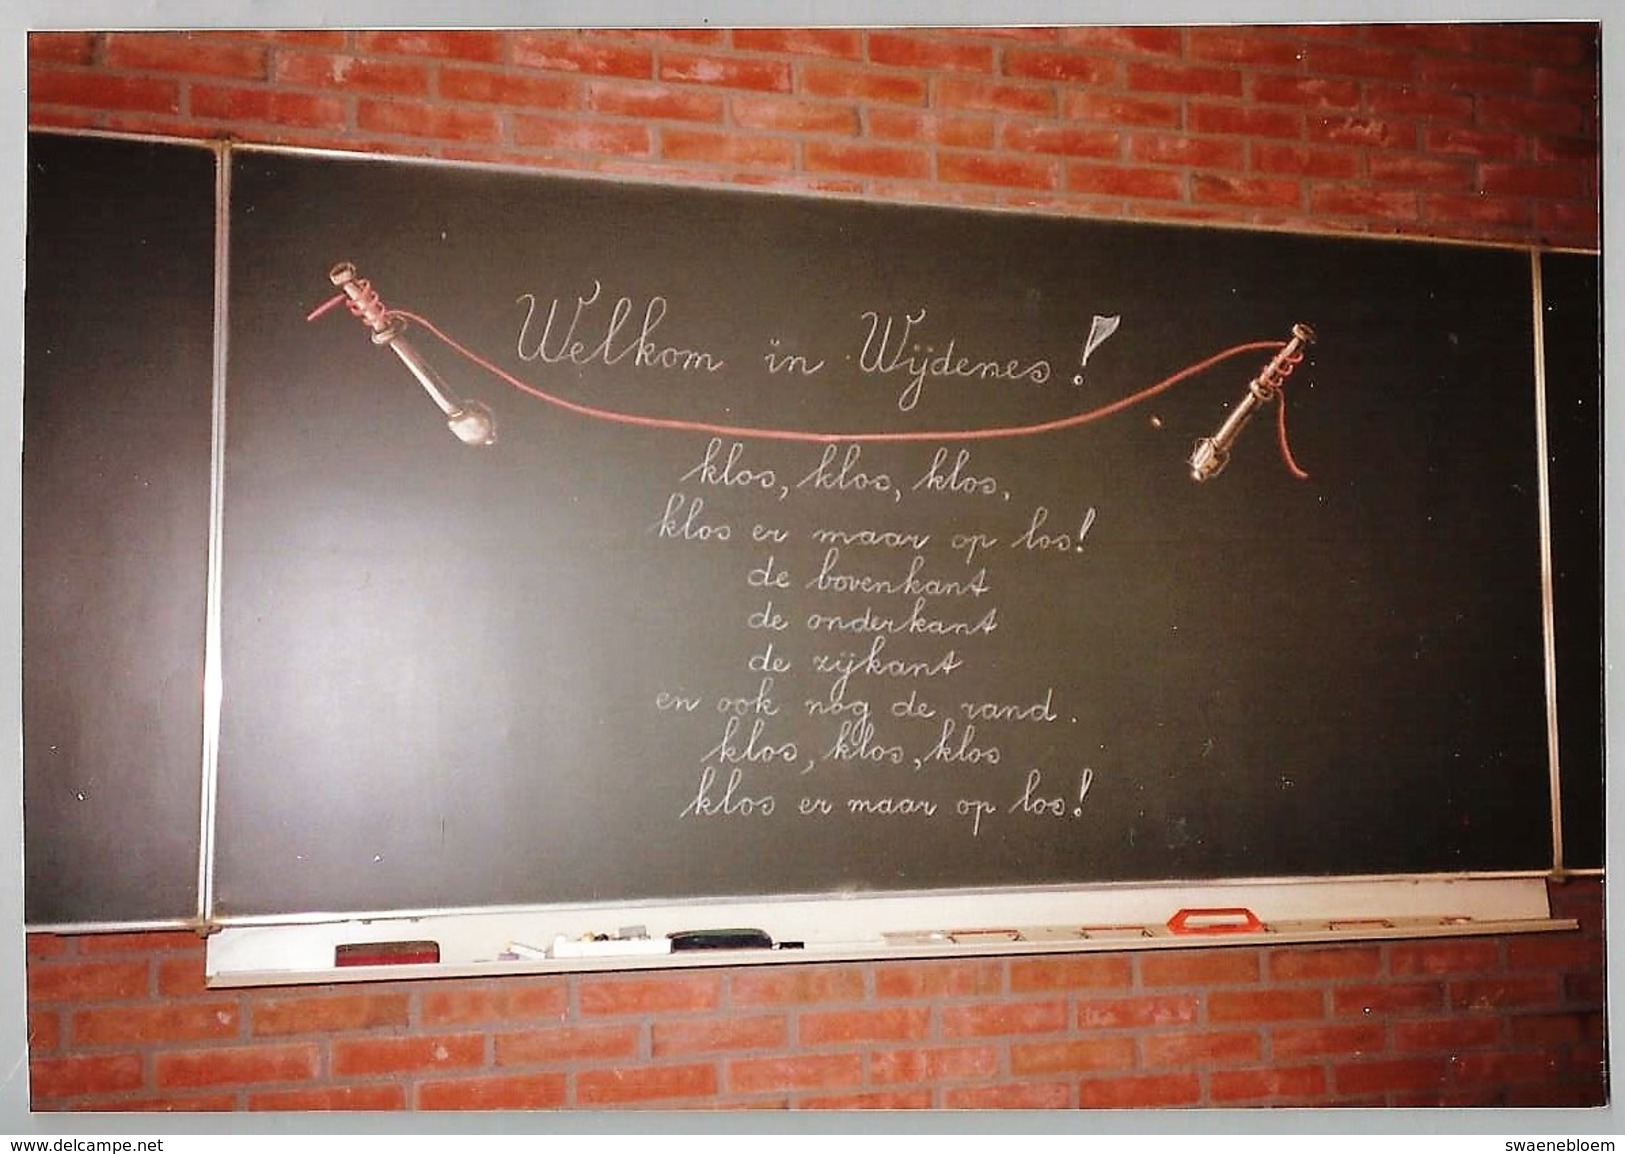 Welkom in Wijdenes!
klos, klos, klos,
klos er maar op los!
de bovenkant
de onderkant
de zijkant
en ook nog de rand.
klos, klos, klos
klos er maar op los!
www.delcampe.net
swaenebloem